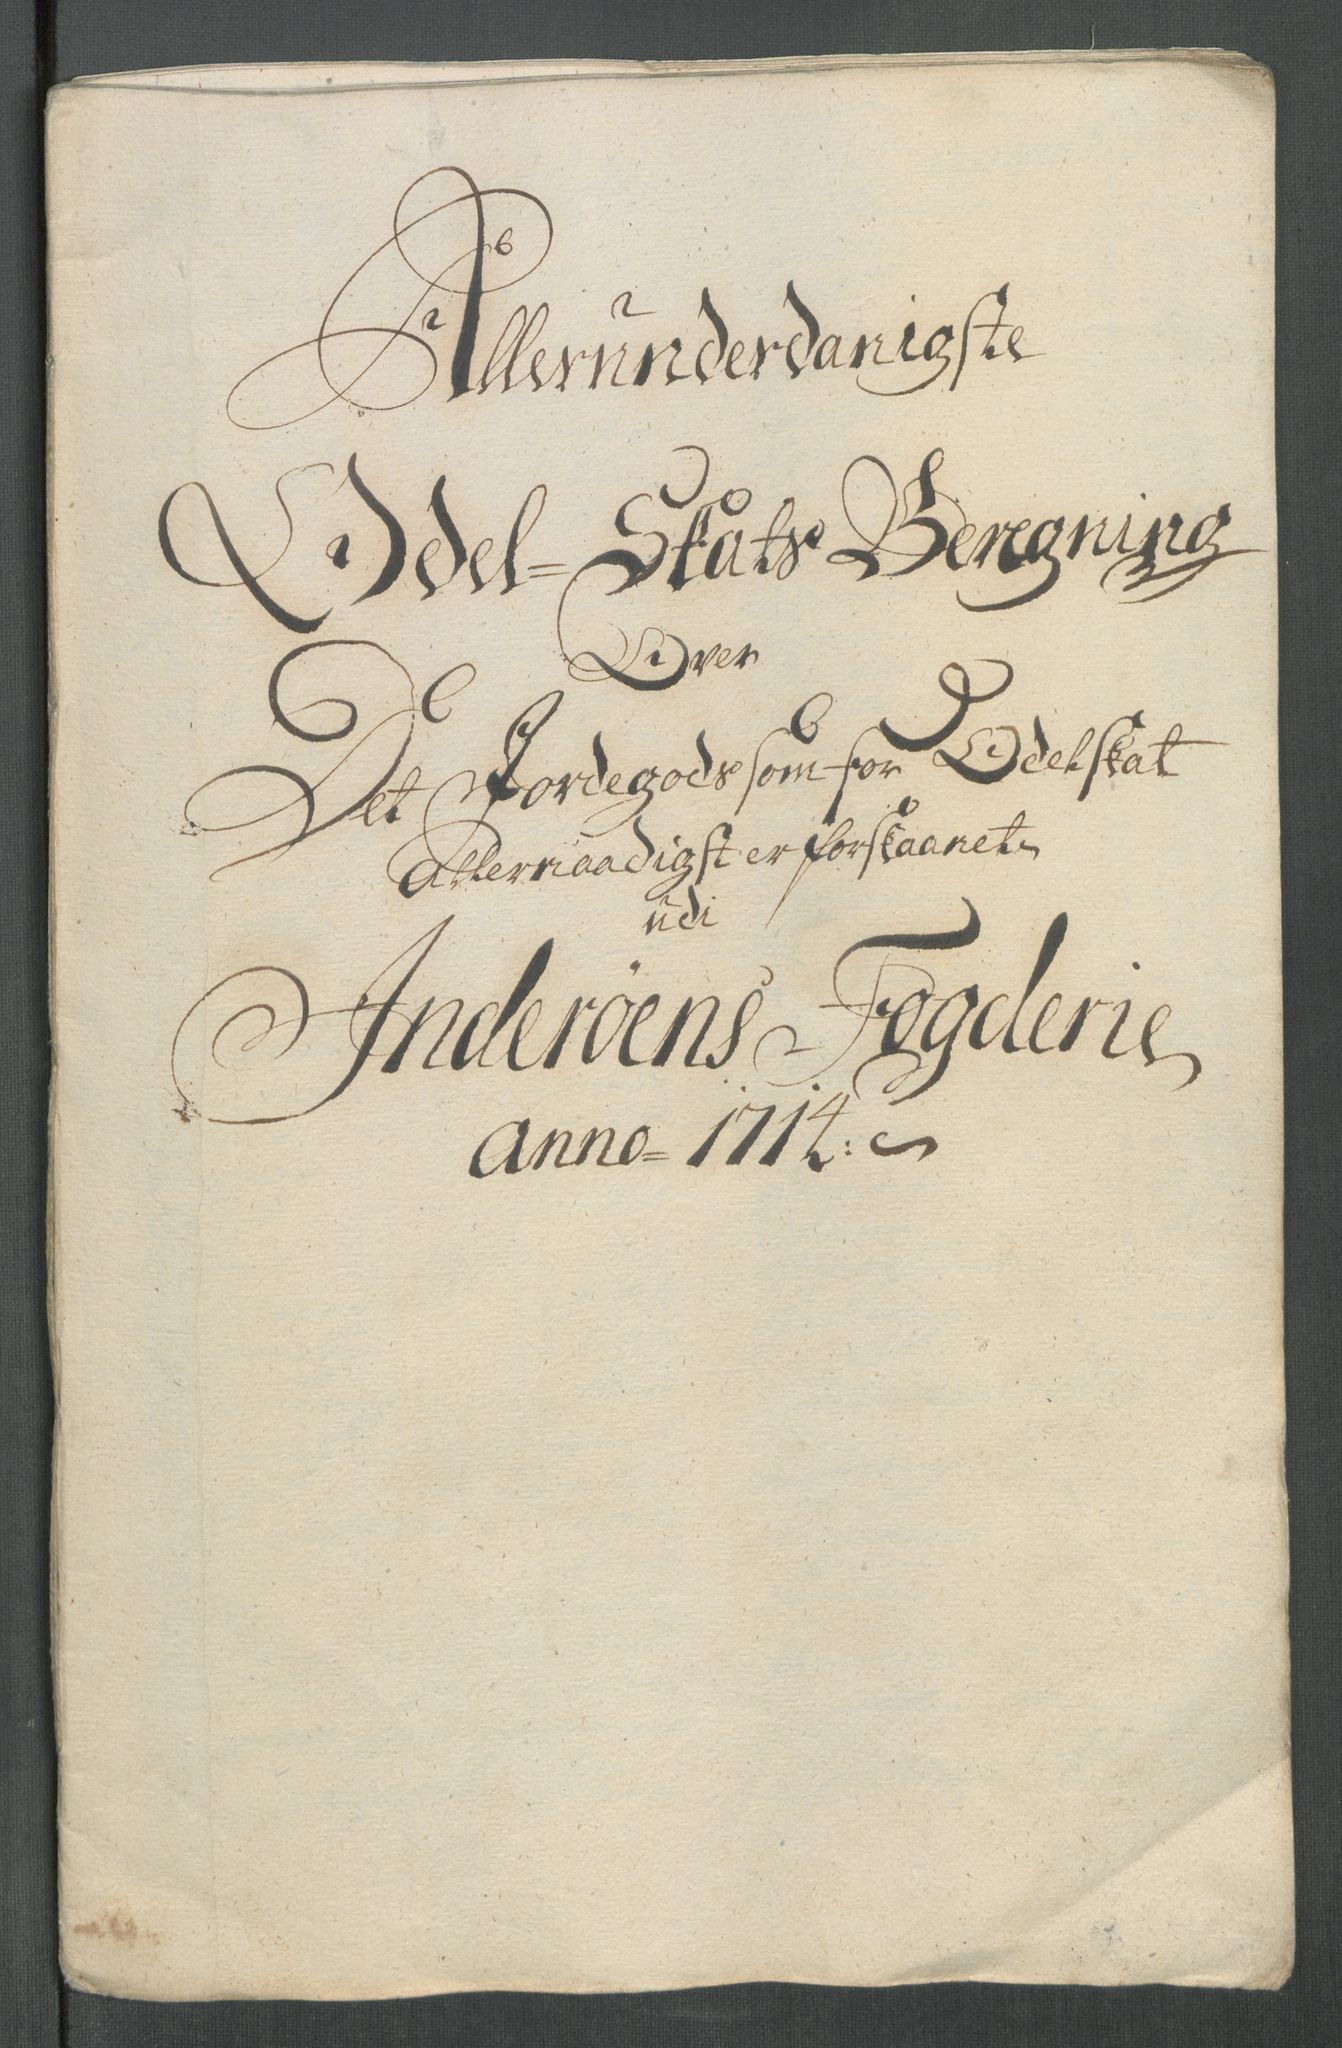 Allerunderdanigste
Odel= Skats Beregning
Over
Det Jordegods som for Odelskat
allernaadigst er forskaanet
udi
Inderöens Fogderie
anno= 1714: